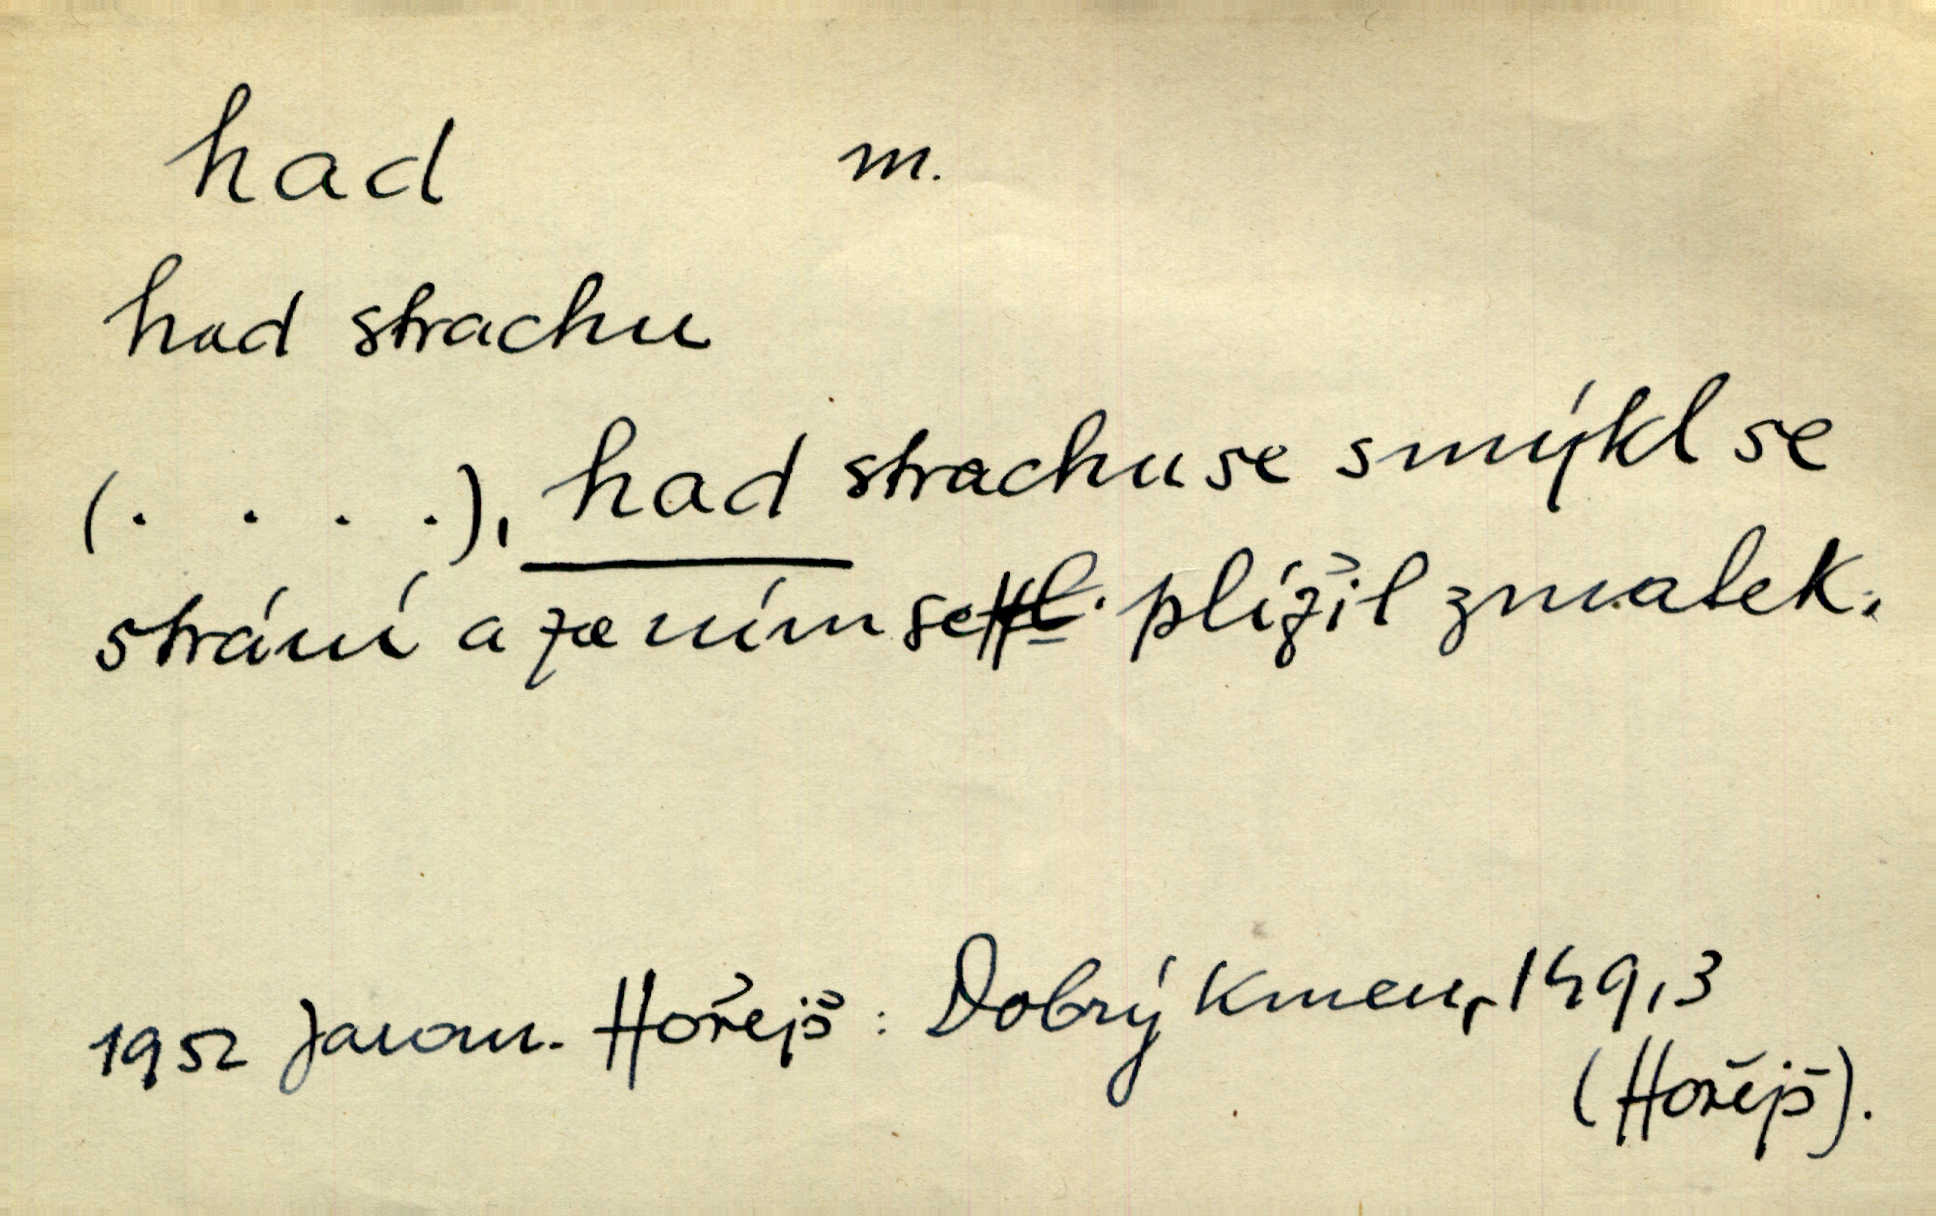 had m.
had strachu
(. . . .), had strachu se smýkl se
strání a za ním se plížil zmatek.
1952 Jarom. Hořejš: Dobrý kmen, 149,3
(Hořejš).